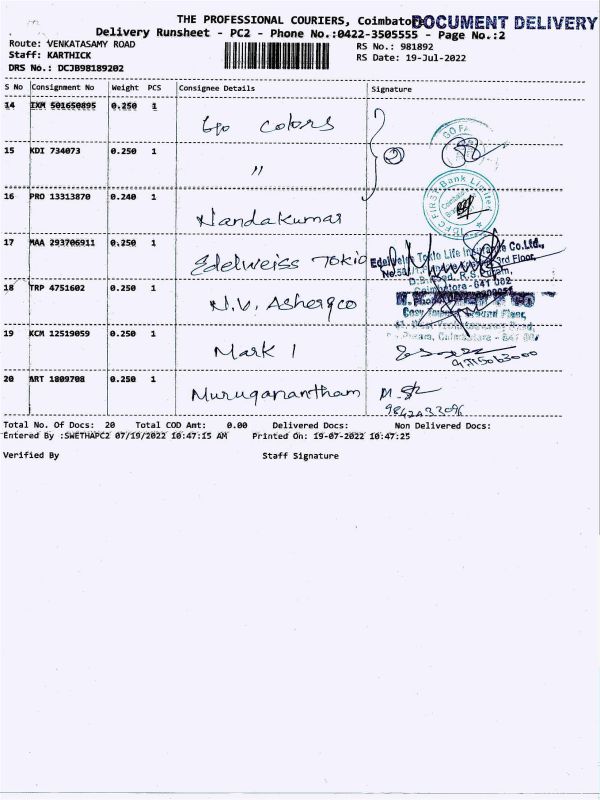 THE PROFESSIONAL COURIERS, Coimbato DOCUMENT DELIVERY
Delivery Runsheet - PC2 - Phone No.:0422-3505555 - Page No.:2
Route: VENKATASAMY ROAD
RS No.: 981892
Staff: KARTHICK
RS Date: 19-Jul-2022
DRS No.: DCJB98189202
S No Consignment No Weight PCS Consignee Details Signature
14 IXM 501650895 0.250 1 Go Colors
15 KDI 734073 0.250 1 "
16 PRO 13313870 0.240 1 Nandakumar
IDFC FIRST Bank Limited
17 MAA 293706911 0.250 1 Edelweiss Tokio
Edelweiss Tokio Life Insurance Co.Ltd.,
3rd Floor,
D.B. Road, R.S. Puram,
Coimbatore - 641 002
18 TRP 4751602 0.250 1 N.V. Asherqco
19 KCM 12519059 0.250 1 Mark 1
20 ART 1809708 0.250 1 Muruganantham
Total No. Of Docs: 20 Total COD Amt: 0.00 Delivered Docs: Non Delivered Docs:
Entered By :SWETHAPC2 07/19/2022 10:47:15 AM Printed On: 19-07-2022 10:47:25
Verified By Staff Signature